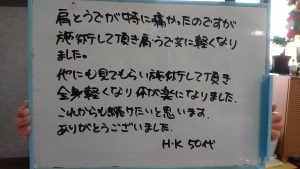 肩とうでが特に痛かったのですが
施術して頂き肩うで共に軽くなり
ました。
他にも見てもらい施術して頂き
全身軽くなり体が楽になりました。
これからも続けたいと思います。
ありがとうございました。
H・K 50代